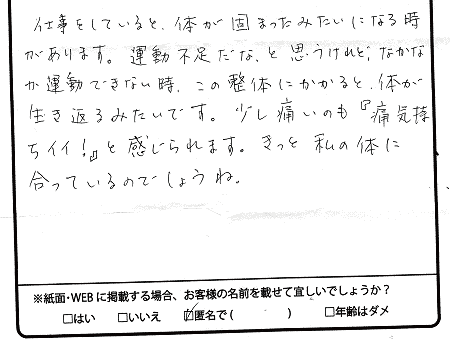 仕事をしていると、体が固まったみたいになる時
があります。運動不足だな、と思うけれど、なかな
か運動できない時、この整体にかかると、体が
生き返るみたいです。少し痛いのも『痛気持
ちイイ！』と感じられます。きっと私の体に
合っているのでしょうね。
※紙面・WEBに掲載する場合、お客様の名前を載せて宜しいでしょうか？
□はい　□いいえ　☑匿名で（　　　　　）　□年齢はダメ